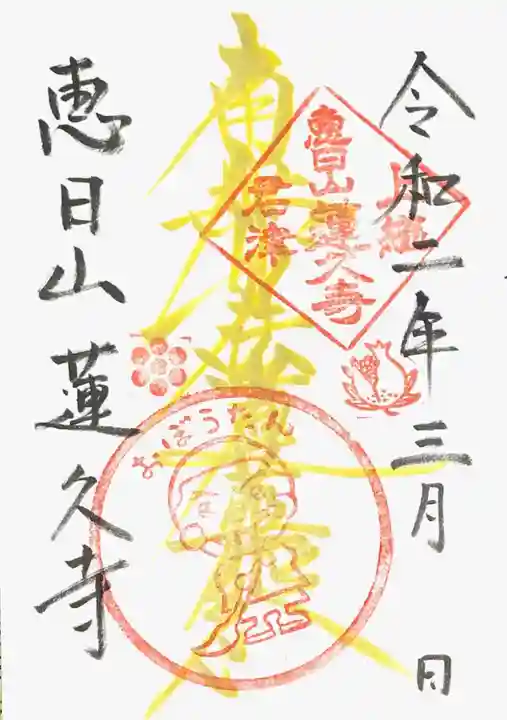 令和二年三月 日
南無妙法蓮華経
上総
恵日山蓮久寺
君津
おぼうたん
恵日山 蓮久寺